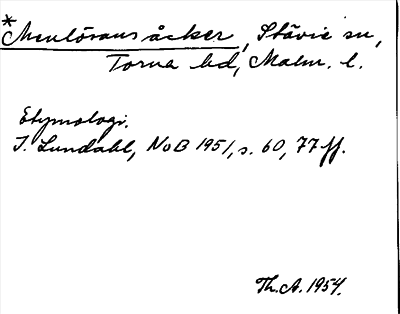 *Menlösans åcker, Stävie sn,
Torna hd, Malm. l.
Etymologi.
I. Lundahl, NoB 1951, s. 60, 77 ff.
Th. A. 1954.